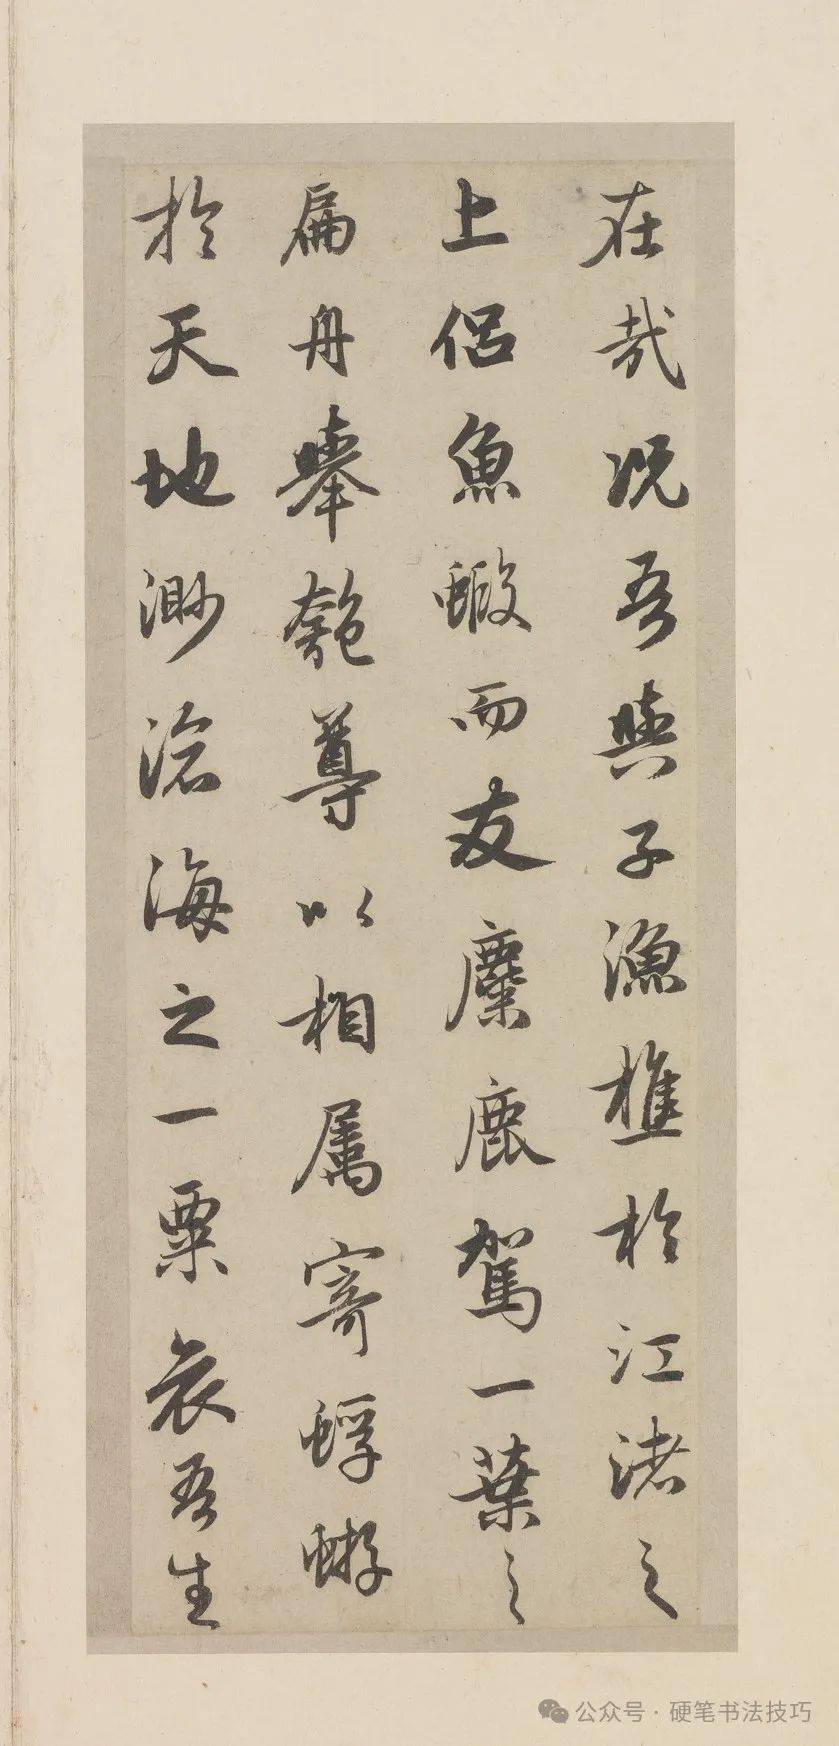 在哉况吾與子漁樵於江渚之
上侶魚蝦而友麋鹿駕一葉之
扁舟舉匏尊以相属寄蜉蝣
於天地渺滄海之一粟哀吾生
公众号 · 硬笔书法技巧